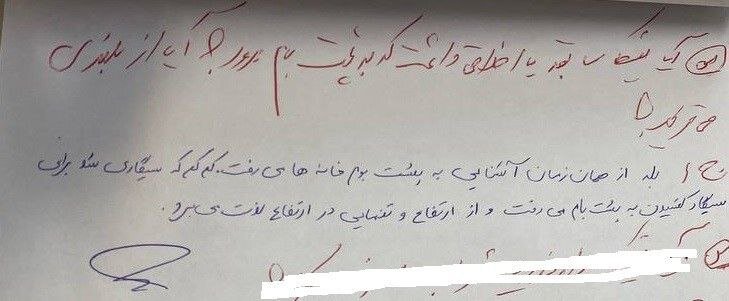 س) آیا نیکا سابقه یا اخلاقی داشت که به پشت بام برود؟ آیا از بلندی
میترسید؟
ج) بله از همان زمان آشنایی به پشت بوم خانه های رفت. کم کم که سیگاری شد برای
سیگار کشیدن به پشت بام می رفت و از ارتفاع و تنهایی در ارتفاع لذت می برد.
س)